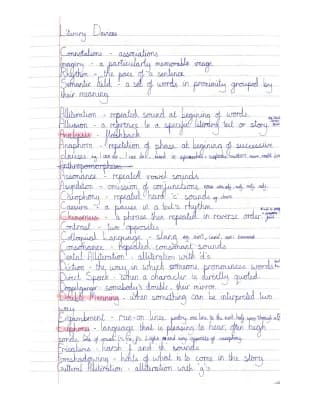 Literary Devices
Connotations - associations
Imagery - a particularly memorable image
Rhythm - the pace of a sentence
Semantic field - a set of words in proximity grouped by
their meaning
Alliteration - repeated sound at begining of words
Allusion - a reference to a specific literary text or story
Analepsis - flashback
Anaphora - repetition of phrase at begining of successive
clauses
Anthropomorphism
Assonance - repeated vowel sounds
Asyndeton - omission of conjunctions
Cacophony - repeated hard 'c' sounds
Caesura - a pause in a text's rhythm
Chiasmus - a phrase then repeated in reverse order
Contrast - two opposites
Colloquial Language - slang
Consonance - repeated consonant sounds
Dental Alliteration - alliteration with d's
Diction - the way in which someone pronounces words
Direct Speech - when a character is directly quoted
Doppelganger - somebody's double, their mirror
Double Meaning - when something can be interpreted two
way
Enjambement - run-on line
Euphony - language that is pleasing to hear, often high
sounds
Fricatives - harsh f and th sounds
Foreshadowing - hints of what is to come in the story
Guttural Alliteration - alliteration with 'g's